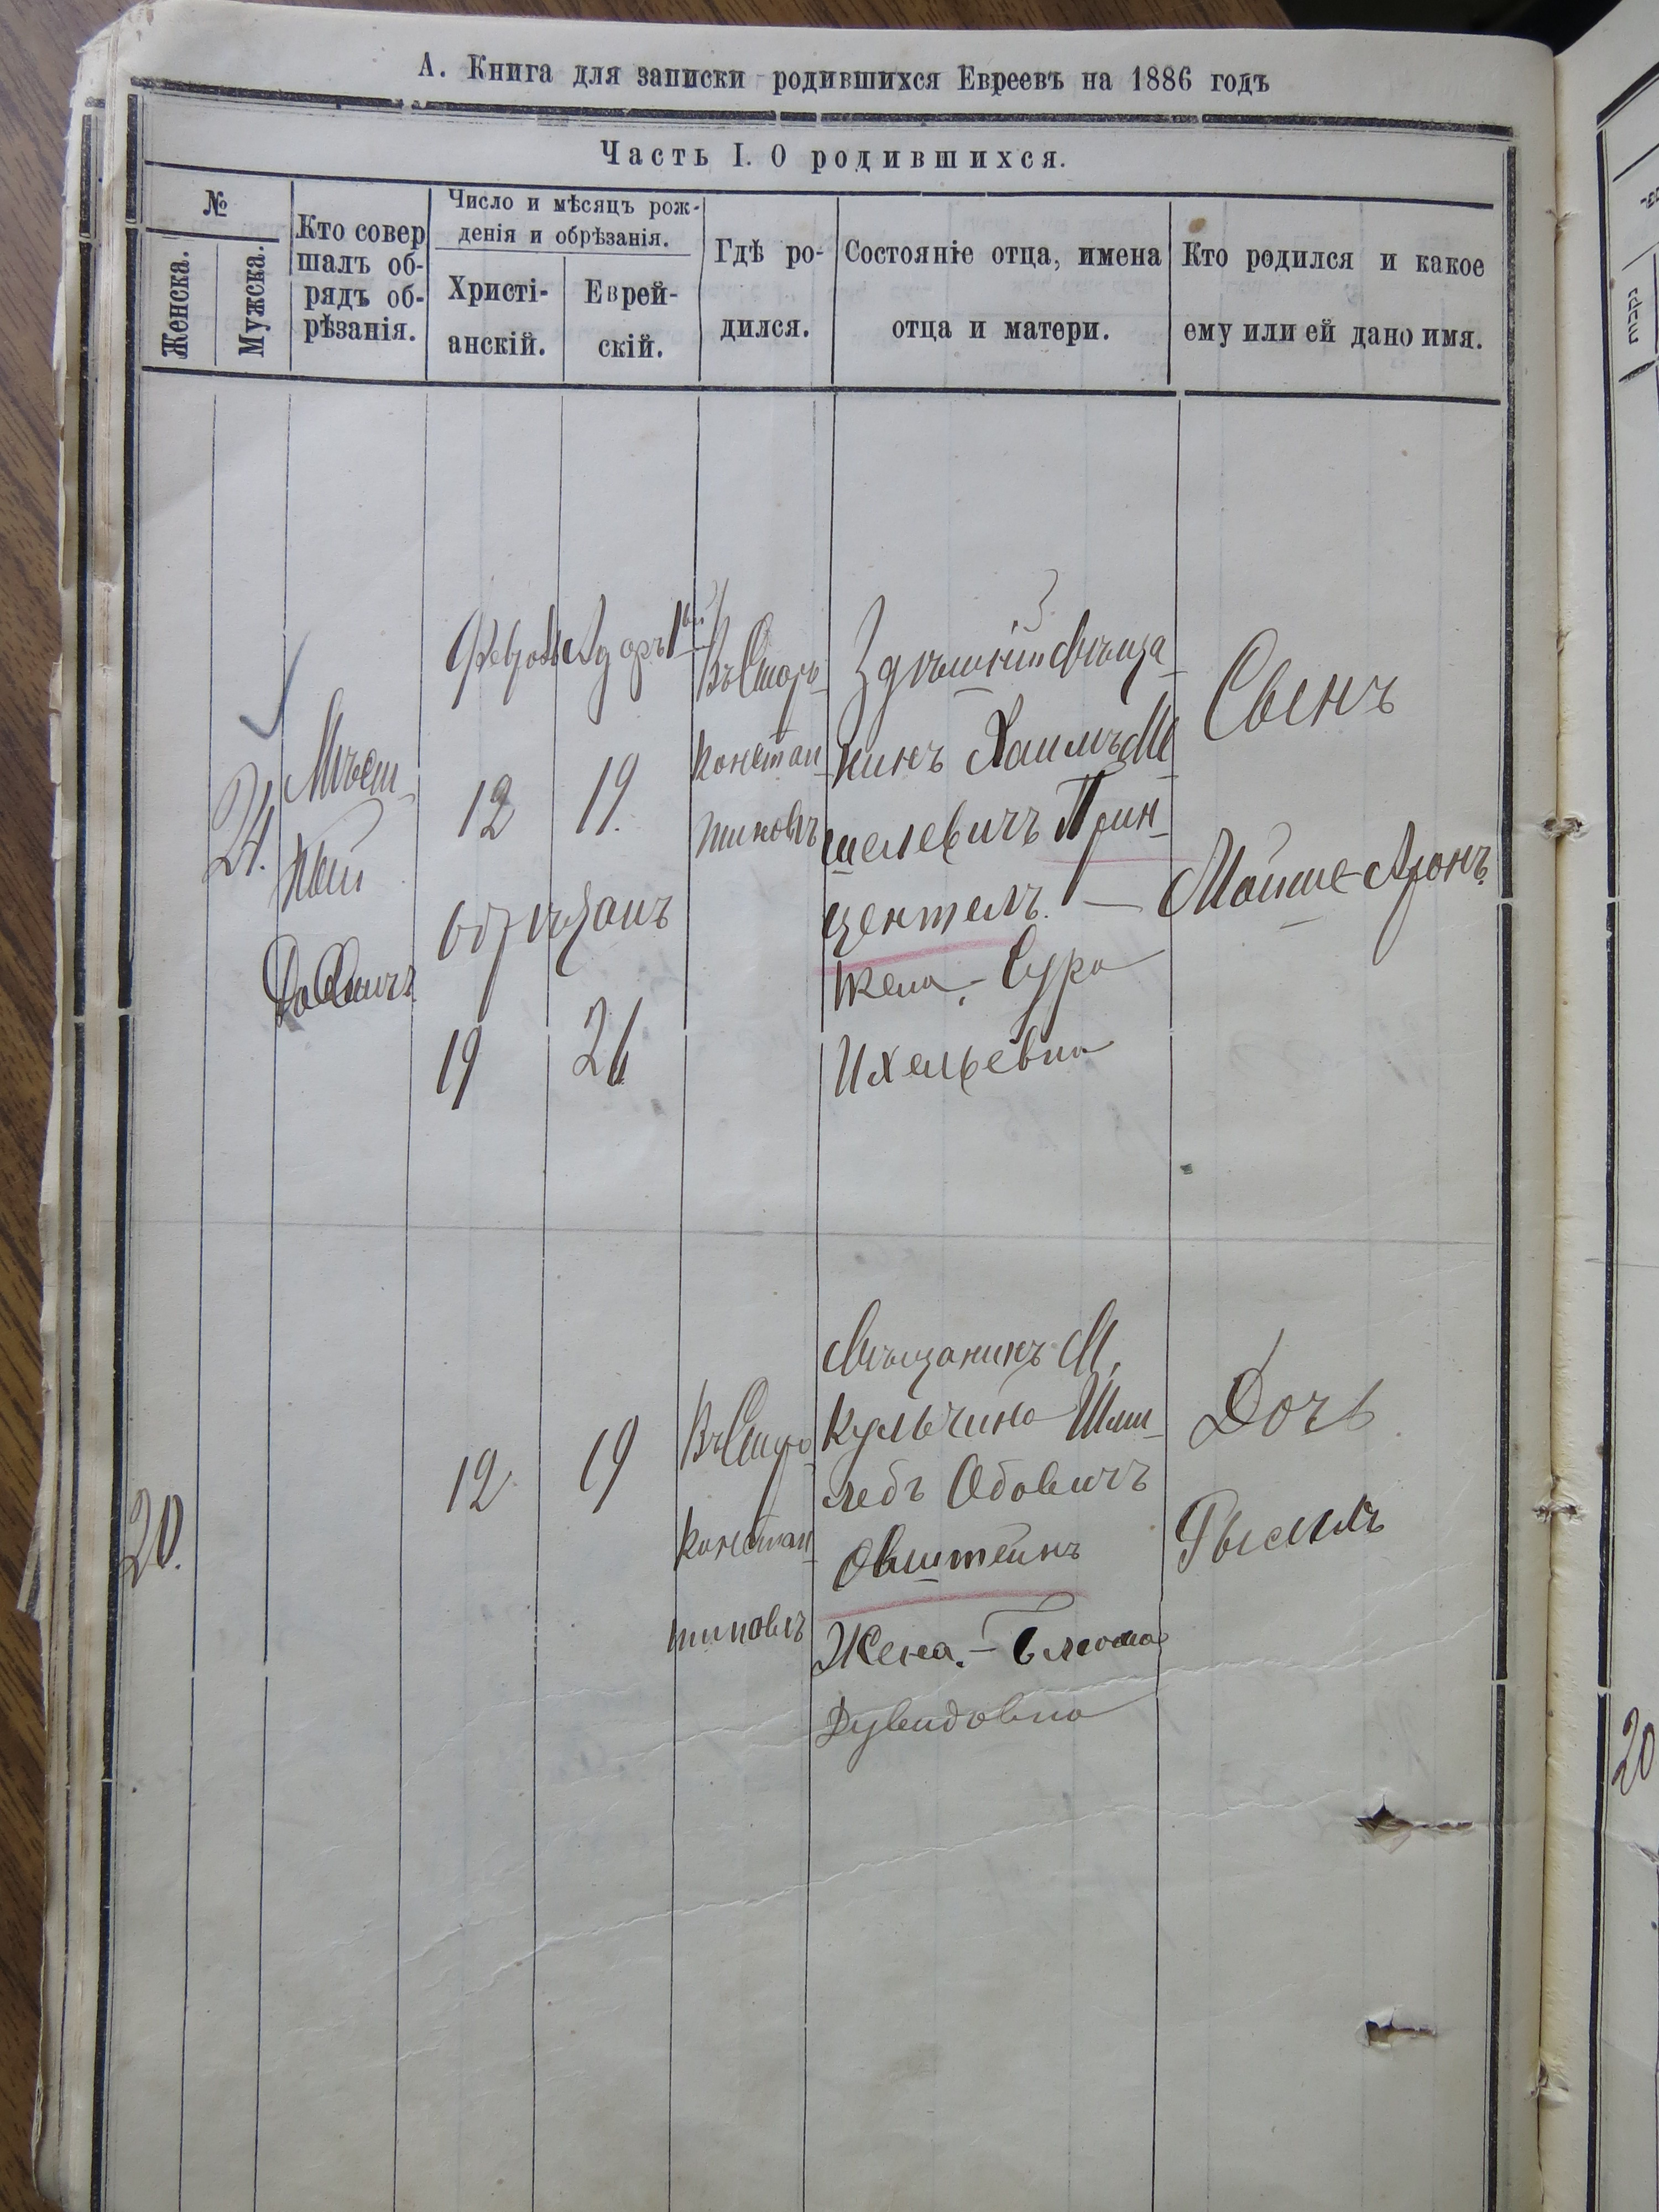 А. Книга для записки родившихся Евреевъ на 1886 годъ
Часть I. О родившихся.
№
Женска.
Мужска.
Кто совер
шалъ об-
рядъ об-
рѣзанія.
Число и мѣсяцъ рож-
денія и обрѣзанія.
Христі-
анскій.
Еврей-
скій.
Гдѣ ро-
дился.
Состояніе отца, имена
отца и матери.
Кто родился и какое
ему или ей дано имя.
21.
Мѣст-
ный
Февраль
12
обрѣзанъ
19
Адаръ 1вый
19.
26
Въ Старо-
констан-
тиновѣ
Здѣшній мѣща-
нинъ Хаимъ М
шелевичъ Прин-
центелъ. —
жена - Сура
Ихельевна
Сынъ
Мойше-Аронъ
20.
12
19
Въ Старо-
констан-
тиновѣ
Мѣщанинъ М.
Кульчина Шми-
лебъ
Жена. - Блюма
Дувидовна
Дочь